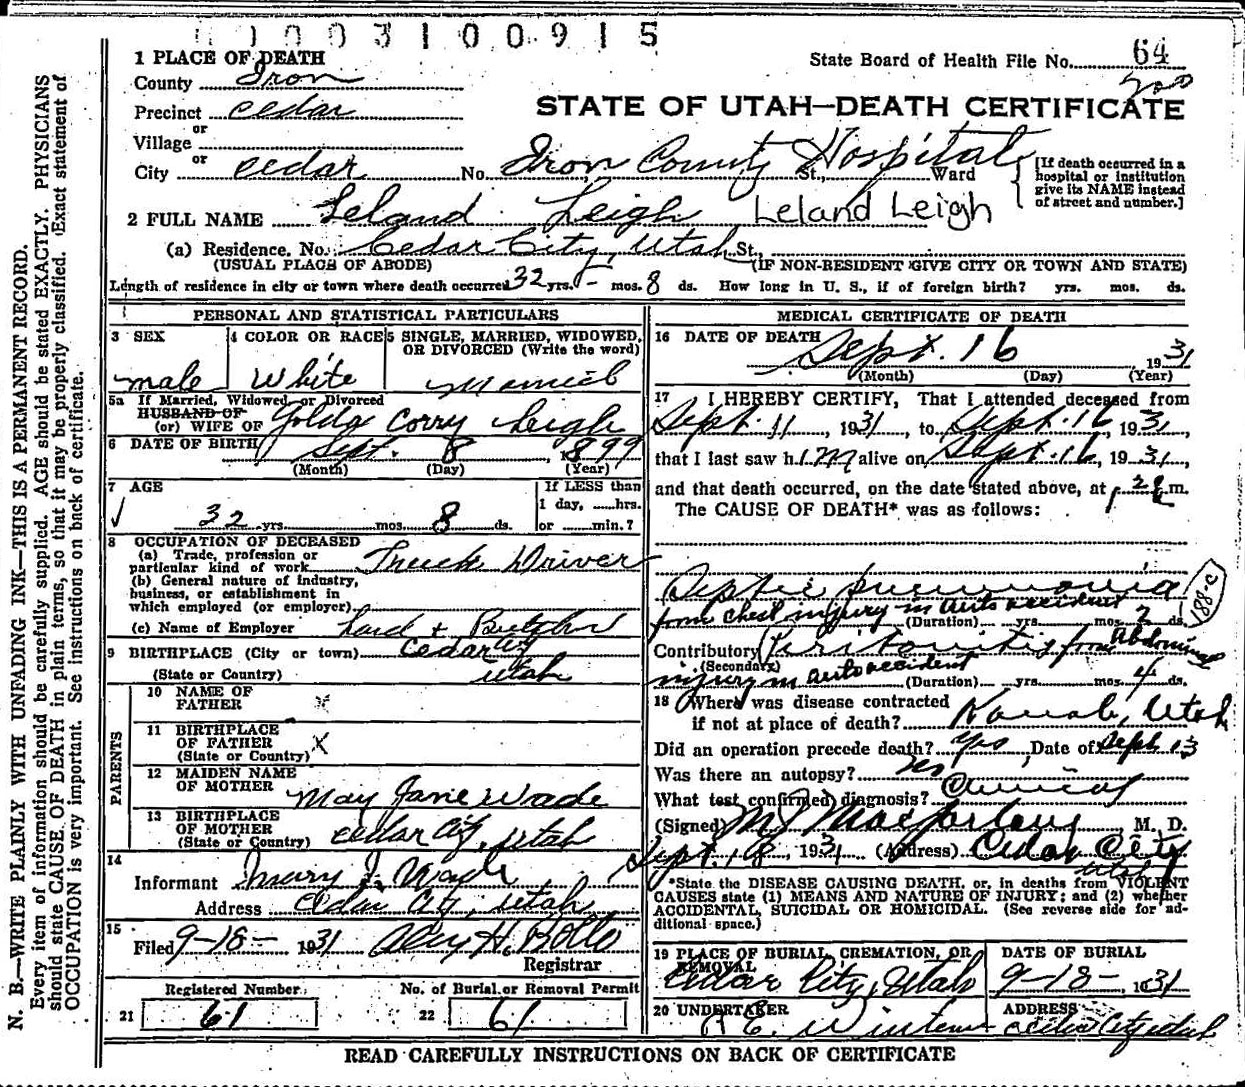 003100915
1 PLACE OF DEATH
County Iron
State Board of Health File No. 64
Precinct Cedar
STATE OF UTAH—DEATH CERTIFICATE
or
Village
or
City Cedar No. Iron County Hospital St., Ward
[If death occurred in a hospital or institution give its NAME instead of street and number.]
2 FULL NAME Leland Leigh Leland Leigh
(a) Residence. No. Cedar City, Utah St.,
(USUAL PLACE OF ABODE) (IF NON-RESIDENT GIVE CITY OR TOWN AND STATE)
Length of residence in city or town where death occurred 32 yrs. - mos. 8 ds. How long in U. S., if of foreign birth? yrs. mos. ds.
PERSONAL AND STATISTICAL PARTICULARS
3 SEX
male
4 COLOR OR RACE
White
5 SINGLE, MARRIED, WIDOWED, OR DIVORCED (Write the word)
Married
5a If Married, Widowed, or Divorced
HUSBAND OF
(or) WIFE OF Golda Corry Leigh
6 DATE OF BIRTH Sept. 8, 1899
(Month) (Day) (Year)
7 AGE
32 yrs. mos. 8 ds.
If LESS than
1 day, hrs.
or min.?
8 OCCUPATION OF DECEASED
(a) Trade, profession or
particular kind of work Truck Driver
(b) General nature of industry,
business, or establishment in
which employed (or employer)
(c) Name of Employer
9 BIRTHPLACE (City or town) Cedar City
(State or Country) Utah
PARENTS
10 NAME OF FATHER x
11 BIRTHPLACE OF FATHER x
(State or Country)
12 MAIDEN NAME OF MOTHER May Jane Wade
13 BIRTHPLACE OF MOTHER Cedar City, Utah
(State or Country)
14
Informant Mary J. Wade
Address Cedar City, Utah
15
Filed 9-18- 1931
Registrar
Registered Number
21 61
No. of Burial or Removal Permit
22 61
MEDICAL CERTIFICATE OF DEATH
16 DATE OF DEATH Sept. 16 1931
(Month) (Day) (Year)
17 I HEREBY CERTIFY, That I attended deceased from
Sept. 11, 1931, to Sept. 16, 1931,
that I last saw him alive on Sept. 16, 1931,
and that death occurred, on the date stated above, at m.
The CAUSE OF DEATH* was as follows:
Septic pneumonia
from chest injury in auto accident
188-c
(Duration) yrs. mos. 2 ds.
Contributory Peritonitis from Abdominal
(Secondary)
injury in auto accident
(Duration) yrs. mos. 4 ds.
18 Where was disease contracted
if not at place of death? Kanab, Utah
Did an operation precede death? Yes, Date of Sept 13
Was there an autopsy?
What test confirmed diagnosis? Clinical
(Signed) M J Macfarlane M. D.
Sept. 18, 1931 (Address) Cedar City
Utah
*State the DISEASE CAUSING DEATH, or, in deaths from VIOLENT
CAUSES state (1) MEANS AND NATURE OF INJURY; and (2) whether
ACCIDENTAL, SUICIDAL OR HOMICIDAL. (See reverse side for ad-
ditional space.)
19 PLACE OF BURIAL, CREMATION, OR REMOVAL
Cedar City, Utah
DATE OF BURIAL
9-18-, 1931
20 UNDERTAKER
ADDRESS
Cedar City Utah
READ CAREFULLY INSTRUCTIONS ON BACK OF CERTIFICATE
N. B.—WRITE PLAINLY WITH UNFADING INK—THIS IS A PERMANENT RECORD.
Every item of information should be carefully supplied. AGE should be stated EXACTLY. PHYSICIANS
should state CAUSE OF DEATH in plain terms, so that it may be properly classified. Exact statement of
OCCUPATION is very important. See instructions on back of certificate.